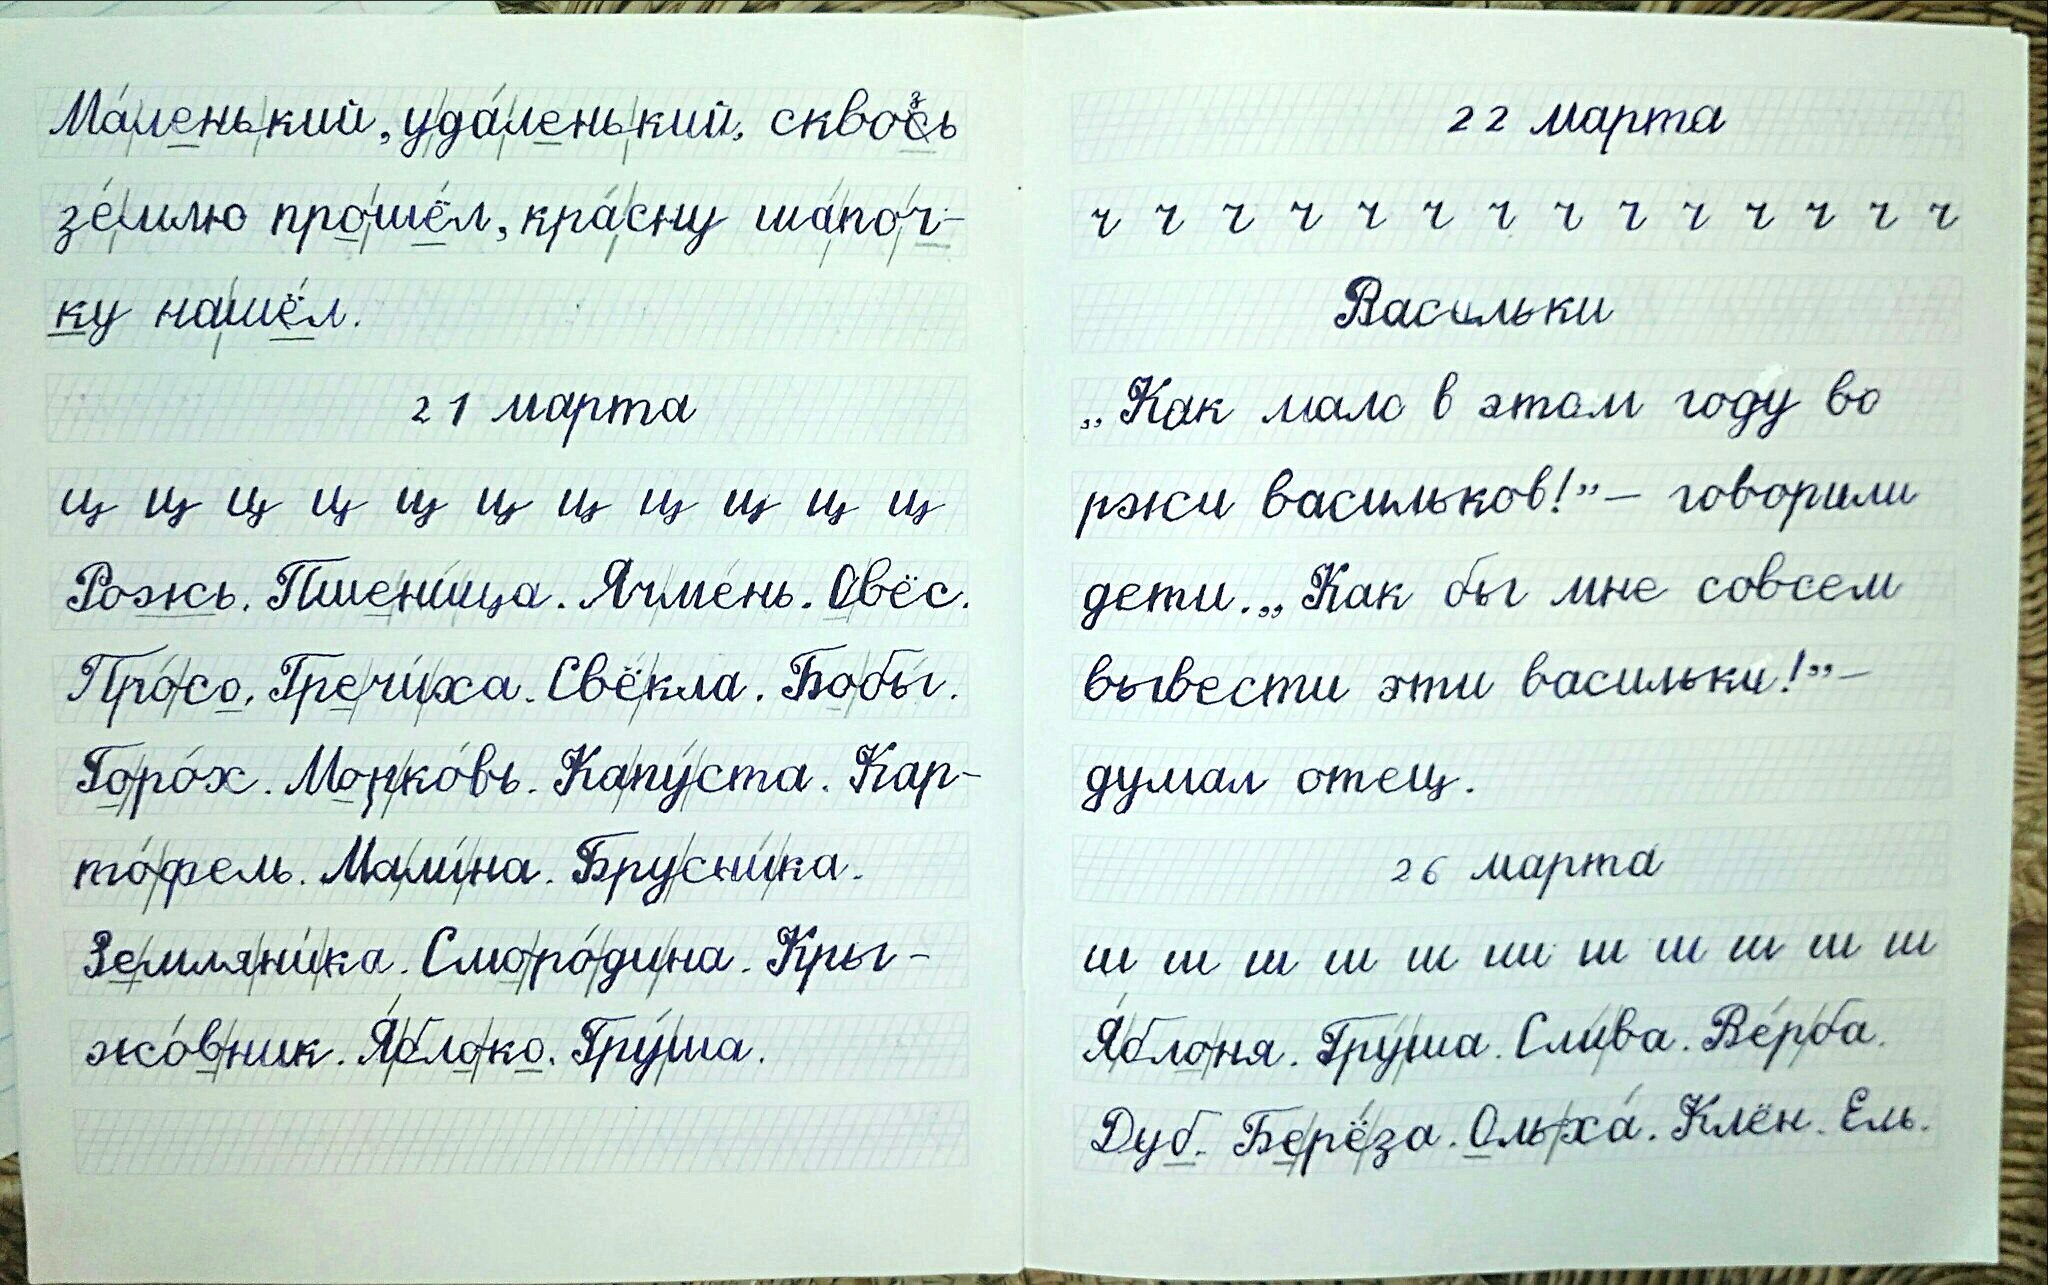 Ма́ленький, уда́ленький, сквозь
зе́млю прошёл, кра́сну ша́поч-
ку нашёл.
21 марта
ц ц ц ц ц ц ц ц ц ц ц
Рожь. Пшени́ца. Ячме́нь. Овёс.
Про́со. Гречи́ха. Свёкла. Бобы́.
Горо́х. Морко́вь. Капу́ста. Кар-
то́фель. Мали́на. Брусни́ка.
Земляни́ка. Сморо́дина. Кры-
жо́вник. Я́блоко. Гру́ша.
22 марта
ч ч ч ч ч ч ч ч ч ч ч ч ч ч
Васильки
„Как мало в этом году во
ржи васильков!” – говорили
дети. „Как бы мне совсем
вывести эти васильки!” –
думал отец.
26 марта
ш ш ш ш ш ш ш ш ш ш ш
Я́блоня. Гру́ша. Сли́ва. Ве́рба.
Дуб. Берёза. Ольха́. Клён. Ель.